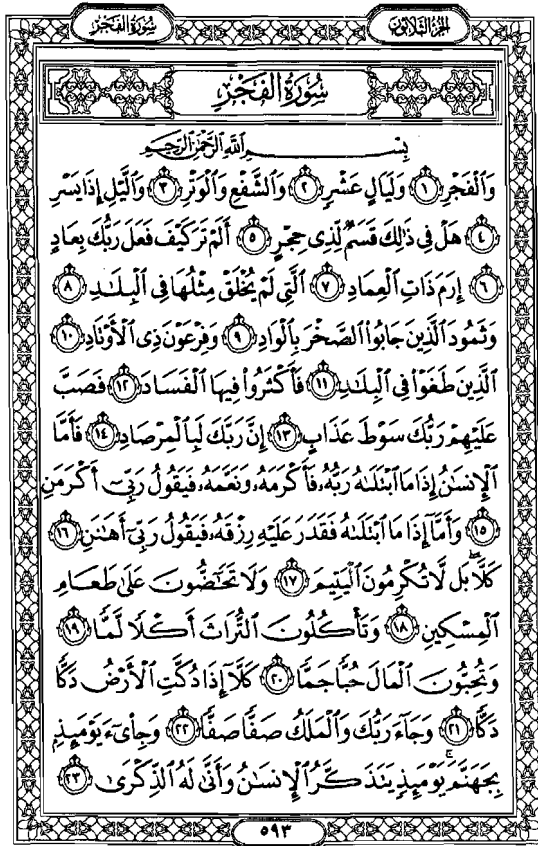 سُورَةُ الفَجْرِ
الجُزْءُ الثَّلَاثُونَ
سُورَةُ الفَجْرِ
بِسْمِ اللَّهِ الرَّحْمَٰنِ الرَّحِيمِ
وَالْفَجْرِ ١ وَلَيَالٍ عَشْرٍ ٢ وَالشَّفْعِ وَالْوَتْرِ ٣ وَاللَّيْلِ إِذَا يَسْرِ
٤ هَلْ فِي ذَٰلِكَ قَسَمٌ لِّذِي حِجْرٍ ٥ أَلَمْ تَرَ كَيْفَ فَعَلَ رَبُّكَ بِعَادٍ
٦ إِرَمَ ذَاتِ الْعِمَادِ ٧ الَّتِي لَمْ يُخْلَقْ مِثْلُهَا فِي الْبِلَٰدِ ٨
وَثَمُودَ الَّذِينَ جَابُوا الصَّخْرَ بِالْوَادِ ٩ وَفِرْعَوْنَ ذِي الْأَوْتَادِ ١٠
الَّذِينَ طَغَوْا فِي الْبِلَٰدِ ١١ فَأَكْثَرُوا فِيهَا الْفَسَادَ ١٢ فَصَبَّ
عَلَيْهِمْ رَبُّكَ سَوْطَ عَذَابٍ ١٣ إِنَّ رَبَّكَ لَبِالْمِرْصَادِ ١٤ فَأَمَّا
الْإِنسَٰنُ إِذَا مَا ابْتَلَىٰهُ رَبُّهُ فَأَكْرَمَهُ وَنَعَّمَهُ فَيَقُولُ رَبِّي أَكْرَمَنِ
١٥ وَأَمَّا إِذَا مَا ابْتَلَىٰهُ فَقَدَرَ عَلَيْهِ رِزْقَهُ فَيَقُولُ رَبِّي أَهَٰنَنِ ١٦
كَلَّا ۖ بَل لَّا تُكْرِمُونَ الْيَتِيمَ ١٧ وَلَا تَحَٰضُّونَ عَلَىٰ طَعَامِ
الْمِسْكِينِ ١٨ وَتَأْكُلُونَ التُّرَاثَ أَكْلًا لَّمًّا ١٩
وَتُحِبُّونَ الْمَالَ حُبًّا جَمًّا ٢٠ كَلَّا إِذَا دُكَّتِ الْأَرْضُ دَكًّا
دَكًّا ٢١ وَجَاءَ رَبُّكَ وَالْمَلَكُ صَفًّا صَفًّا ٢٢ وَجِاْىءَ يَوْمَئِذٍ
بِجَهَنَّمَ ۚ يَوْمَئِذٍ يَتَذَكَّرُ الْإِنسَٰنُ وَأَنَّىٰ لَهُ الذِّكْرَىٰ ٢٣
٥٩٣